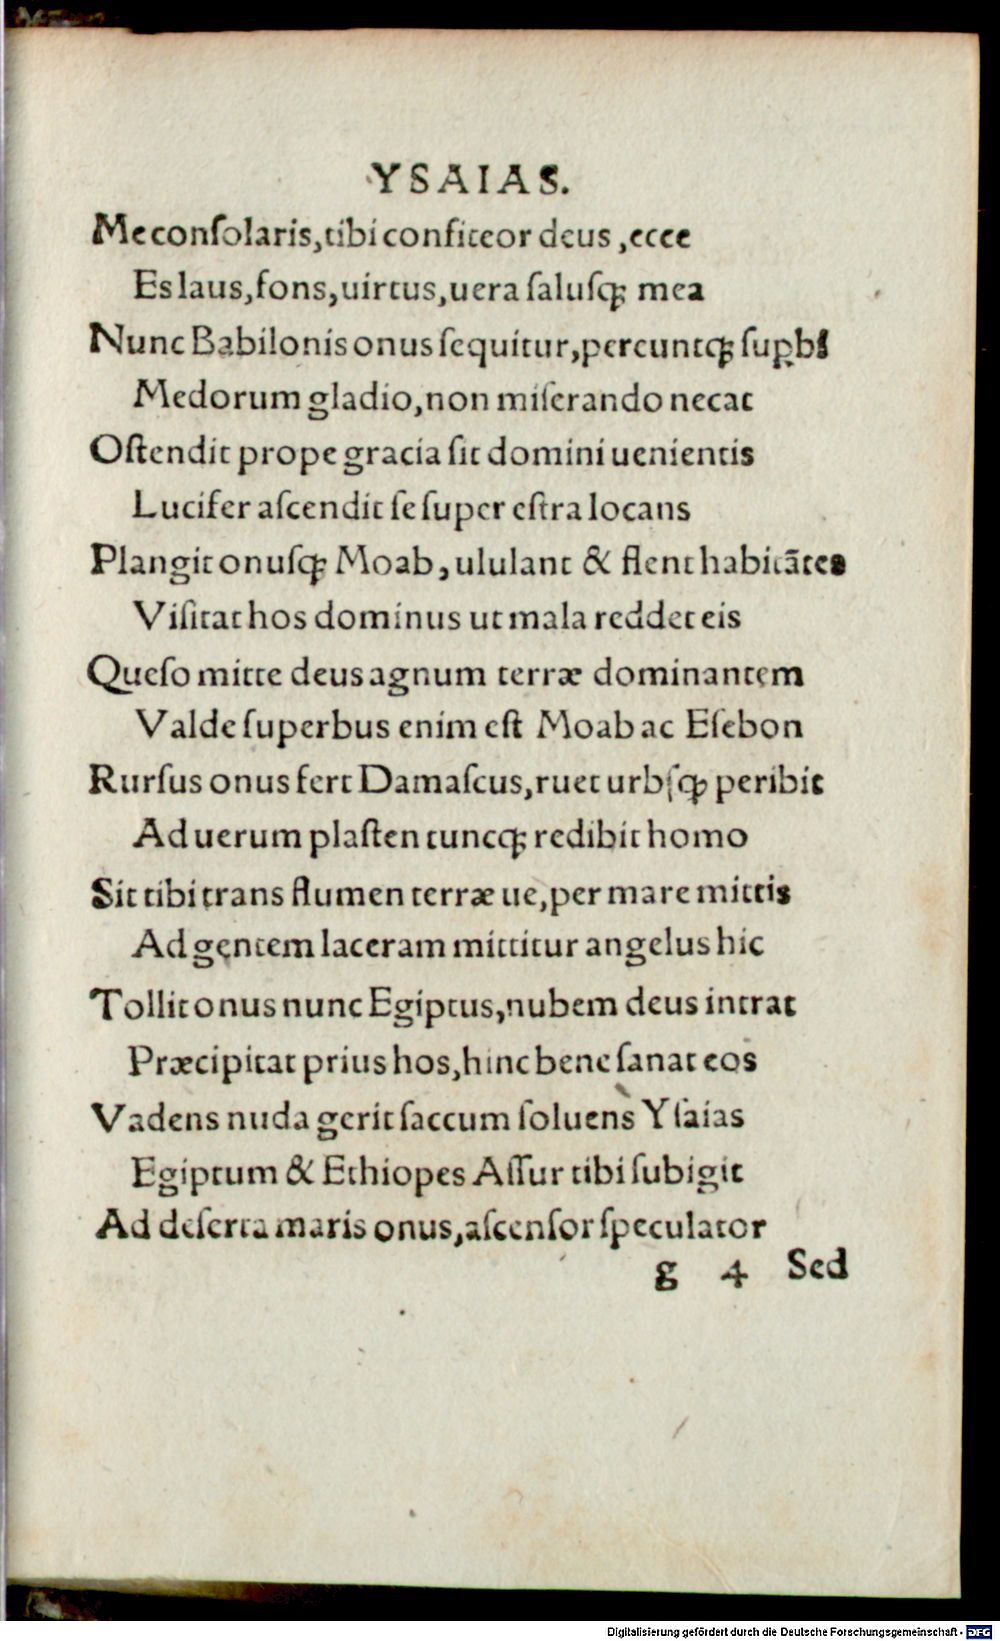 YSAIAS.
Me conſolaris, tibi confiteor deus, ecce
Es laus, fons, uirtus, uera ſaluſqꝫ mea
Nunc Babilonis onus ſequitur, pereuntqꝫ suꝑbi
Medorum gladio, non miſerando necat
Oſtendit prope gracia ſit domini uenientis
Lucifer aſcendit ſe ſuper eſtra locans
Plangit onuſqꝫ Moab, ululant & flent habitãtes
Viſitat hos dominus ut mala reddet eis
Queſo mitte deus agnum terræ dominantem
Valde ſuperbus enim eſt Moab ac Eſebon
Rurſus onus fert Damaſcus, ruet urbſqꝫ peribit
Ad uerum plaſten tuncqꝫ redibit homo
Sit tibi trans flumen terræ ue, per mare mittis
Ad gentem laceram mittitur angelus hic
Tollit onus nunc Egiptus, nubem deus intrat
Præcipitat prius hos, hinc bene ſanat eos
Vadens nuda gerit ſaccum ſoluens Yſaias
Egiptum & Ethiopes Aſſur tibi ſubigit
Ad deſerta maris onus, aſcenſor ſpeculator
g 4 Sed
Digitalisierung gefördert durch die Deutsche Forschungsgemeinschaft - DFG